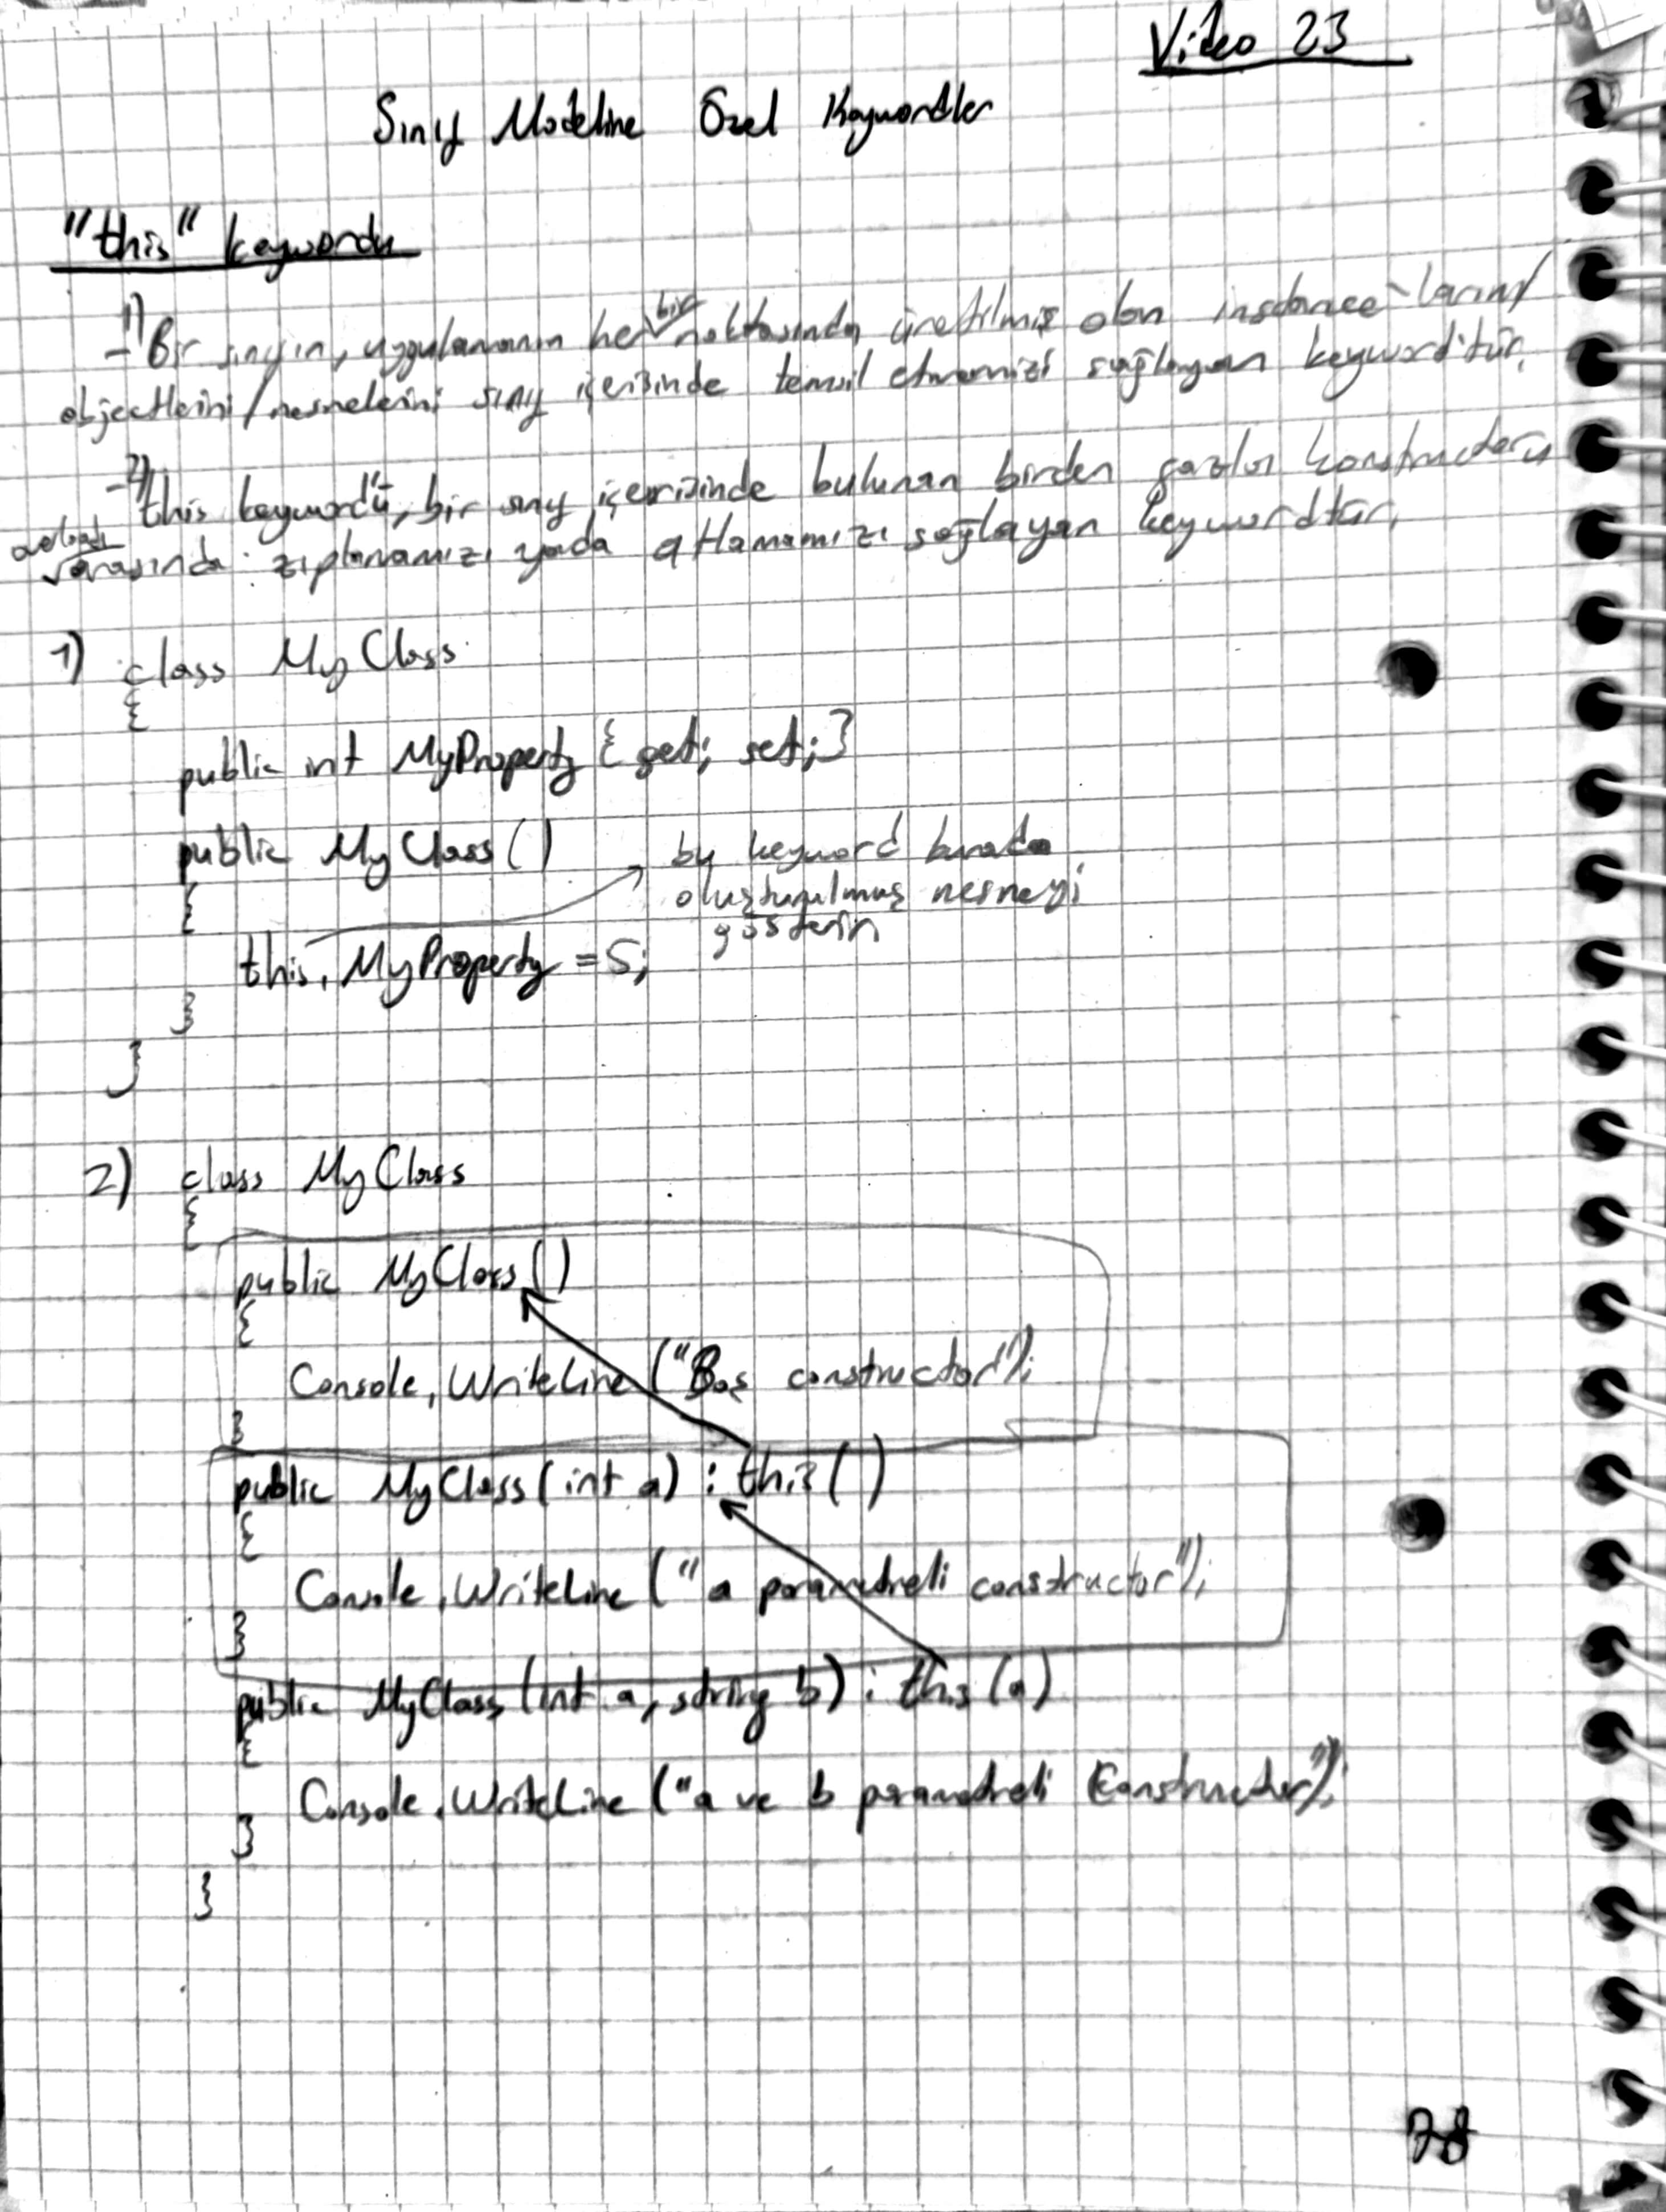 Video 23
Sınıf Modeline Özel Keywordler
"this" keywordu
-1) Bir sınıfın, uygulamanın her bir noktasında üretilmiş olan instance'larını/
objectlerini/nesnelerini sınıf içerisinde temsil etmemizi sağlayan keyword'tür.
-2) this keywordü, bir sınıf içerisinde bulunan birden fazla constructorı
arasında zıplamamızı yada atlamamızı sağlayan keywordtür.
1) class MyClass
{
public int MyProperty { get; set; }
public MyClass()
bu keyword burada
{
oluşturulmuş nesneyi
gösterir
this.MyProperty = 5;
}
}
2) class MyClass
{
public MyClass()
{
Console.WriteLine("Boş constructor");
}
public MyClass(int a) : this()
{
Console.WriteLine("a parametreli constructor");
}
public MyClass(int a, string b) : this(a)
{
Console.WriteLine("a ve b parametreli Constructor");
}
}
78